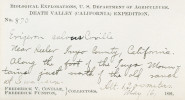 BIOLOGICAL EXPLORATIONS, U. S. DEPARTMENT OF AGRICULTURE.
DEATH VALLEY (CALIFORNIA) EXPEDITION.
No.
Erigeron
Near Keeler Inyo County, California.
Along the foot of the Inyo Moun-
tains just north of the old range
FREDERICK V. COVILLE,
FREDERICK FUNSTON, } COLLECTORS.
May